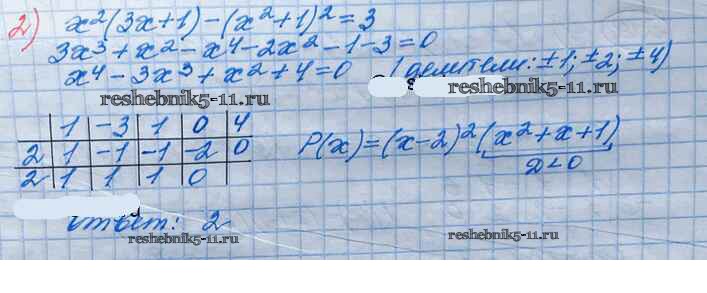 2) x²(3x+1)-(x²+1)²=3
3x³+x²-x⁴-2x²-1-3=0
x⁴-3x³+x²+4=0 (делители: ±1; ±2; ±4)
reshebnik5-11.ru reshebnik5-11.ru
1 -3 1 0 4
2 1 -1 -1 -2 0
2 1 1 1 0
P(x)=(x-2)²(x²+x+1)
D<0
Ответ: 2
reshebnik5-11.ru reshebnik5-11.ru